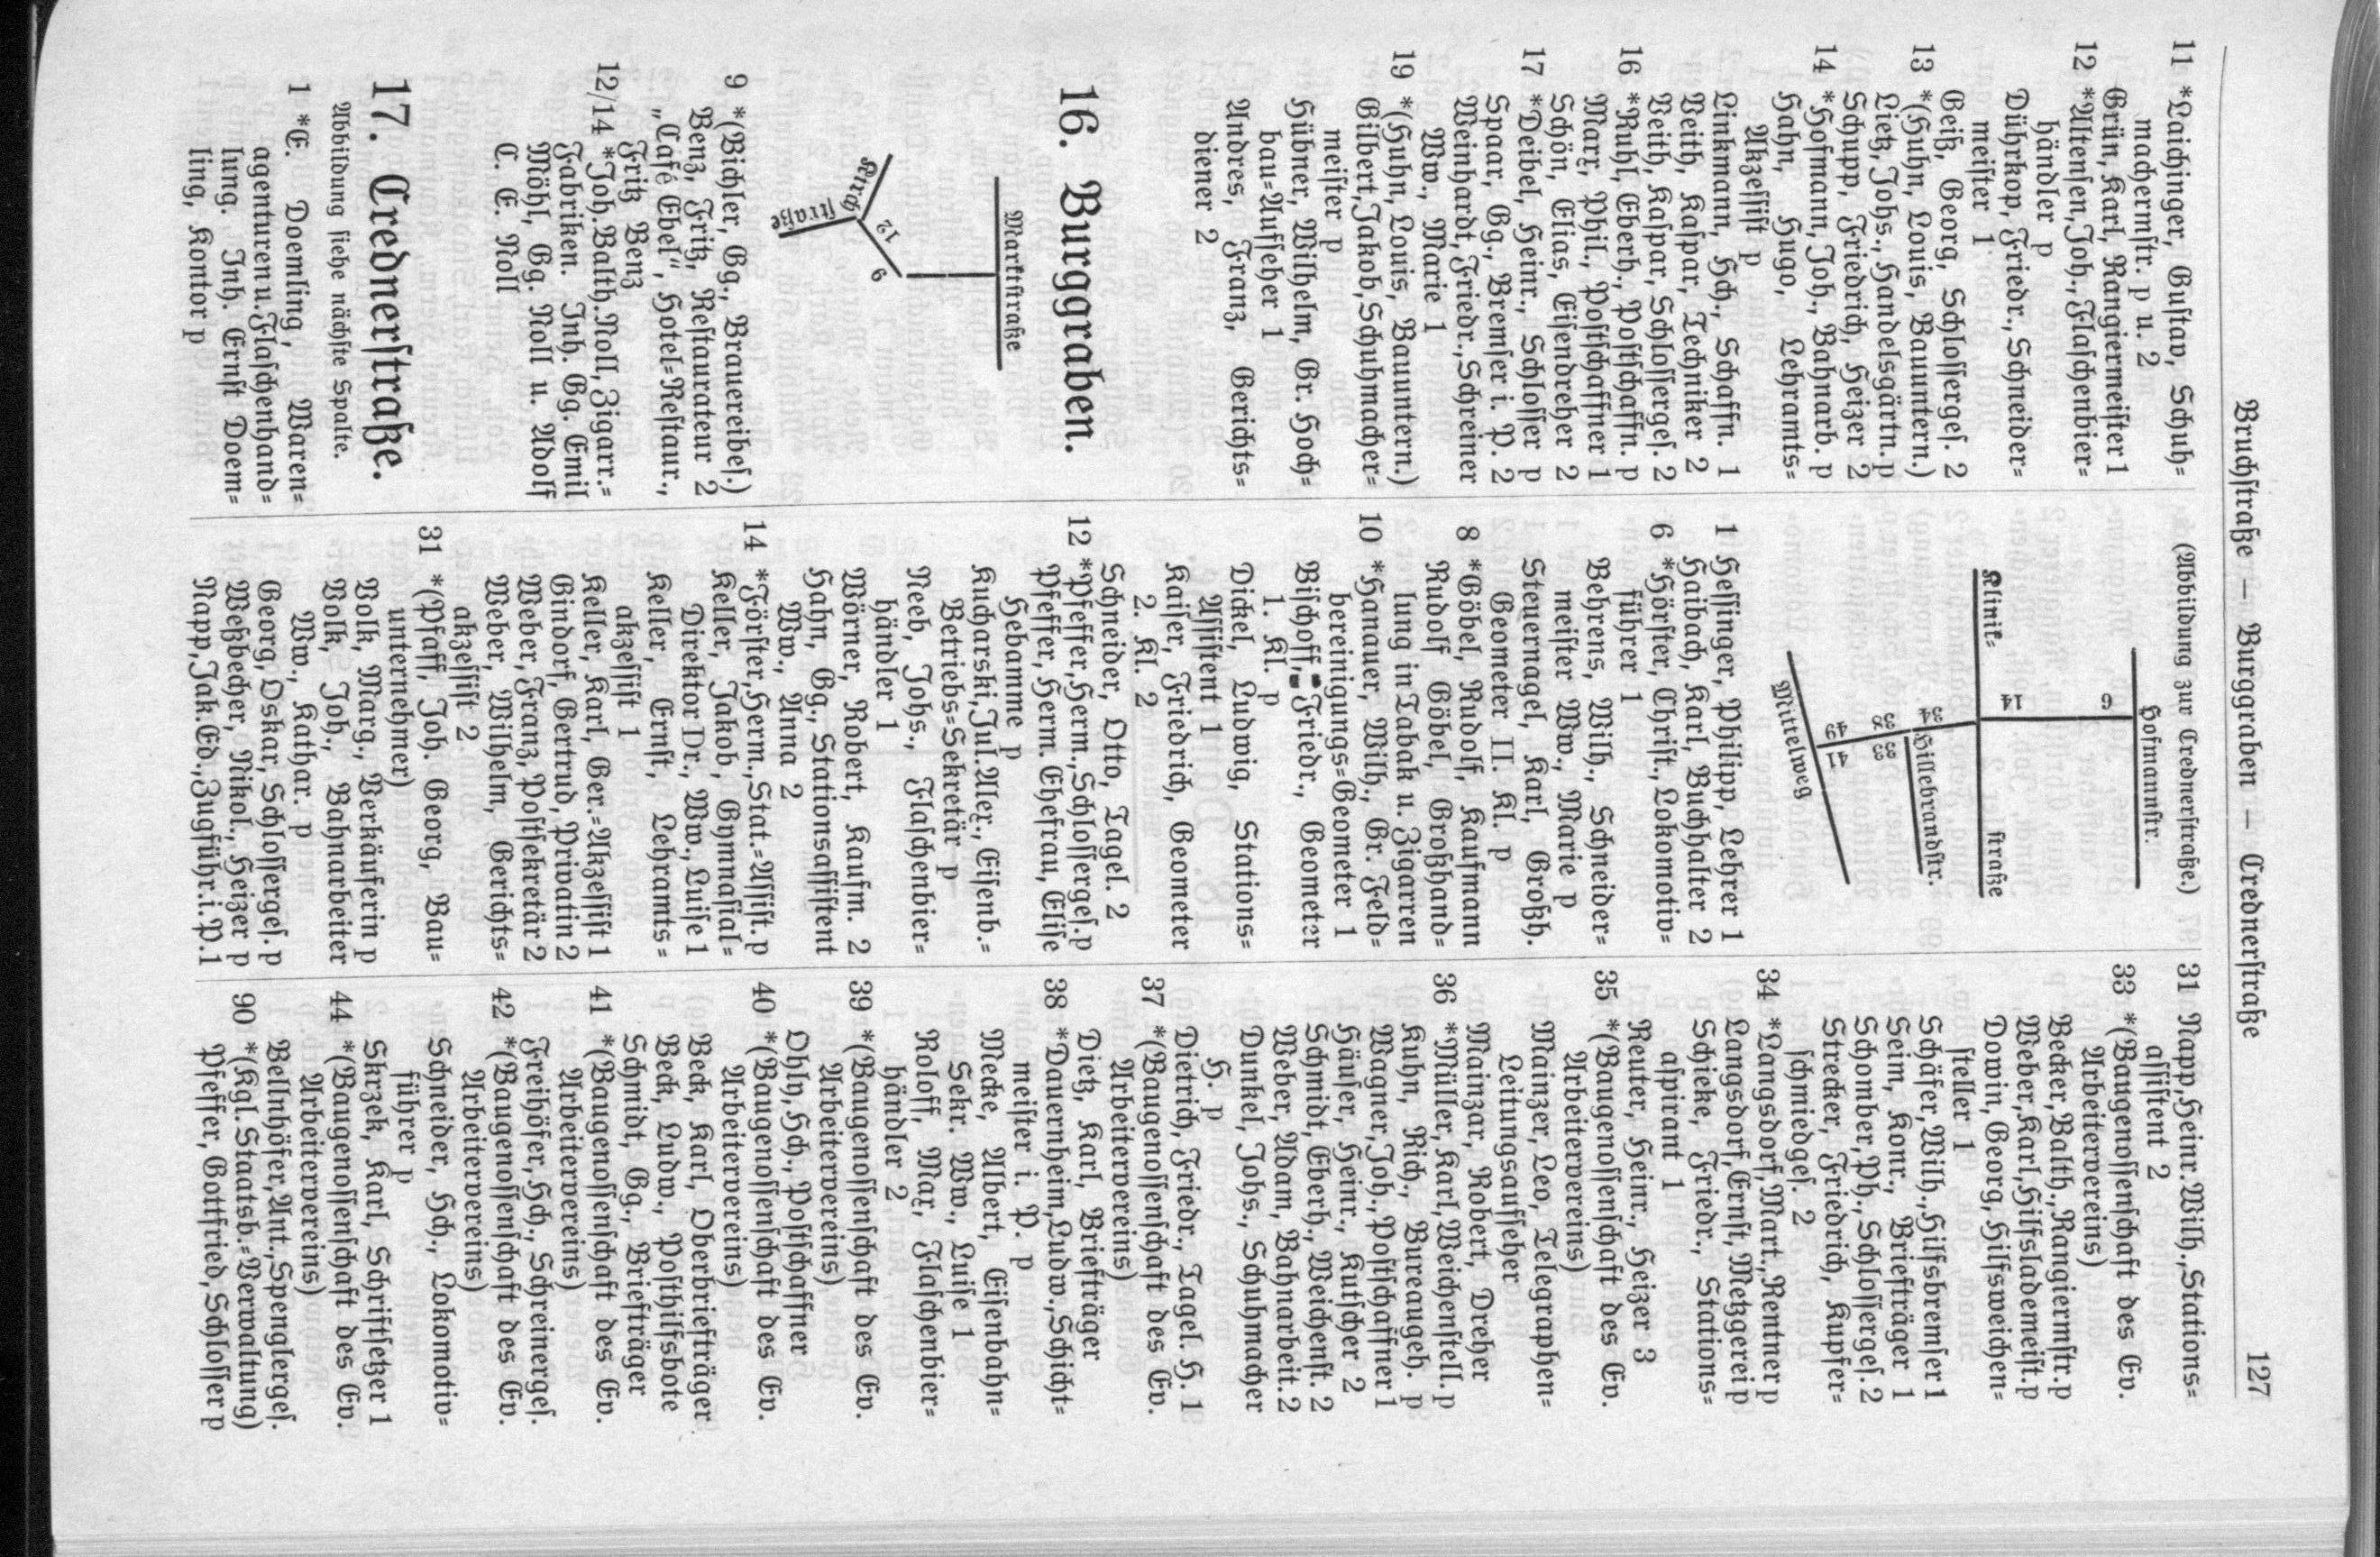 Bruchstraße — Burggraben — Crednerstraße 127
11 *Laichinger, Gustav, Schuh=
machermstr. p u. 2
Grün, Karl, Rangiermeister 1
12 *Altensen, Joh., Flaschenbier=
händler p
Dührkop, Friedr., Schneider=
meister 1
Geiß, Georg, Schlosserges. 2
13 *(Huhn, Louis, Bauuntern.)
Lietz, Johs., Handelsgärtn. p
Schupp, Friedrich, Heizer 2
14 *Hofmann, Joh., Bahnarb. p
Hahn, Hugo, Lehramts=
Akzessist p
Linkmann, Hch., Schaffn. 1
Veith, Kaspar, Techniker 2
Veith, Kaspar, Schlosserges. 2
16 *Ruhl, Eberh., Postschaffn. p
Marx, Phil., Postschaffner 1
Schön, Elias, Eisendreher 2
17 *Deibel, Heinr., Schlosser p
Spaar, Gg., Bremser i. P. 2
Weinhardt, Friedr., Schreiner
Ww., Marie 1
19 *(Huhn, Louis, Bauuntern.)
Gilbert, Jakob, Schuhmacher=
meister p
Hübner, Wilhelm, Gr. Hoch=
bau=Aufseher 1
Andres, Franz, Gerichts=
diener 2
16. Burggraben.
Marktstraße
9
12
Kirch
straße
9 *(Bichler, Gg., Brauereibes.)
Benz, Fritz, Restaurateur 2
„Café Ebel“, Hotel=Restaur.,
Fritz Benz
12/14 *Joh. Balth. Noll, Zigarr.=
Fabriken. Inh. Gg. Emil
Möhl, Gg. Noll u. Adolf
C. E. Noll
17. Crednerstraße.
Abbildung siehe nächste Spalte.
1 *E. Doemling, Waren=
agenturen u. Flaschenhand=
lung. Inh. Ernst Doem=
ling, Kontor p
(Abbildung zur Crednerstraße.)
Hofmannstr.
6
14
Klinik=
straße
34
Hillebrandstr.
38
33
49
41
Mittelweg
1 Hessinger, Philipp, Lehrer 1
Haibach, Karl, Buchhalter 2
6 *Hörster, Christ., Lokomotiv=
führer 1
Behrens, Wilh., Schneider=
meister Ww., Marie p
Steuernagel, Karl, Großh.
Geometer II. Kl. p
8 *Göbel, Rudolf, Kaufmann
Rudolf Göbel, Großhand=
lung in Tabak u. Zigarren
10 *Hanauer, Wilh., Gr. Feld=
bereinigungs=Geometer 1
Bischoff, Friedr., Geometer
1. Kl. p
Dickel, Ludwig, Stations=
Assistent 1
Kaiser, Friedrich, Geometer
2. Kl. 2
Schneider, Otto, Tagel. 2
12 *Pfeffer, Herm., Schlosserges. p
Pfeffer, Herm. Ehefrau, Elise
Hebamme p
Kucharski, Jul. Alex., Eisenb.=
Betriebs=Sekretär p
Neeb, Johs., Flaschenbier=
händler 1
Wörner, Robert, Kaufm. 2
Hahn, Gg., Stationsassistent
Ww., Anna 2
14 *Förster, Herm., Stat.=Assist. p
Keller, Jakob, Gymnasial=
Direktor Dr., Ww., Luise 1
Keller, Ernst, Lehramts=
akzessist 1
Keller, Karl, Ger.=Akzessist 1
Gindorf, Gertrud, Privatin 2
Weber, Franz, Postsekretär 2
Weber, Wilhelm, Gerichts=
akzessist 2
31 *(Pfaff, Joh. Georg, Bau=
unternehmer)
Volk, Marg., Verkäuferin p
Volk, Joh., Bahnarbeiter
Ww., Kathar. p
Georg, Oskar, Schlosserges. p
Weßbecher, Nikol., Heizer p
Napp, Jak. Ed., Zugführ. i. P. 1
31 Napp, Heinr. Wilh., Stations=
assistent 2
33 *(Baugenossenschaft des Ev.
Arbeitervereins)
Becker, Balth., Rangiermstr. p
Weber, Karl, Hilfslademeist. p
Dowin, Georg, Hilfsweichen=
steller 1
Schäfer, Wilh., Hilfsbremser 1
Seim, Konr., Briefträger 1
Schomber, Ph., Schlosserges. 2
Strecker, Friedrich, Kupfer=
schmiedges. 2
34 *Langsdorf, Mart., Rentner p
Langsdorf, Ernst, Metzgerei p
Schieke, Friedr., Stations=
aspirant 1
Reuter, Heinr., Heizer 3
35 *(Baugenossenschaft des Ev.
Arbeitervereins)
Mainzer, Leo, Telegraphen=
Leitungsaufseher
Mainzar, Robert, Dreher
36 *Müller, Karl, Weichenstell. p
Kuhn, Rich., Bureaugeh. p
Wagner, Joh., Postschaffner 1
Häuser, Heinr., Kutscher 2
Schmidt, Eberh., Weichenst. 2
Weber, Adam, Bahnarbeit. 2
Dunkel, Johs., Schuhmacher
H. p
Dietrich, Friedr., Tagel. H. 1
37 *(Baugenossenschaft des Ev.
Arbeitervereins)
Dietz, Karl, Briefträger
38 *Dauernheim, Ludw., Schicht=
meister i. P. p
Mecke, Albert, Eisenbahn=
Sekr. Ww., Luise 1
Roloff, Max, Flaschenbier=
händler 2
39 *(Baugenossenschaft des Ev.
Arbeitervereins)
Ohly, Hch., Postschaffner
40 *(Baugenossenschaft des Ev.
Arbeitervereins)
Beck, Karl, Oberbriefträger
Beck, Ludw., Posthilfsbote
Schmidt, Gg., Briefträger
41 *(Baugenossenschaft des Ev.
Arbeitervereins)
Freihöfer, Hch., Schreinerges.
42 *(Baugenossenschaft des Ev.
Arbeitervereins)
Schneider, Hch., Lokomotiv=
führer p
Skrzek, Karl, Schriftsetzer 1
44 *(Baugenossenschaft des Ev.
Arbeitervereins)
Bellnhöfer, Ant., Spenglerges.
90 *(Kgl. Staatsb.=Verwaltung)
Pfeffer, Gottfried, Schlosser p